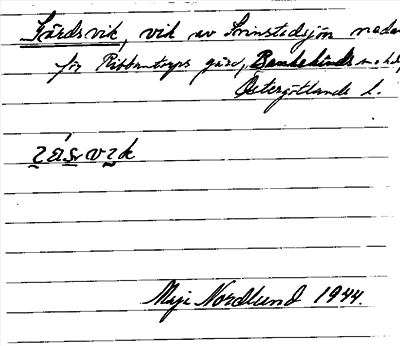 Gårdsvik, vik av Svinstadsjön nedan
för Ribbantorps gård, Bankekinds sn o hd,
Östergötlands l.
Maja Nordlund 1944.